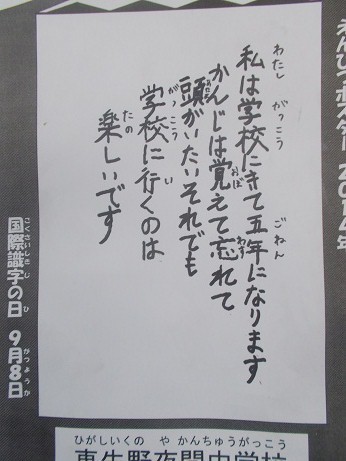 えんぴつポスター 2014年
私は学校にきて五年になります
わたし がっこう ごねん
かんじは覚えて忘れて
おぼ わす
頭がいたいそれでも
あたま
学校に行くのは
がっこう い
楽しいです
たの
国際識字の日 9月8日
こくさいしきじ ひ がつようか
ひがしいくの やかんちゅうがっこう
東生野夜間中学校